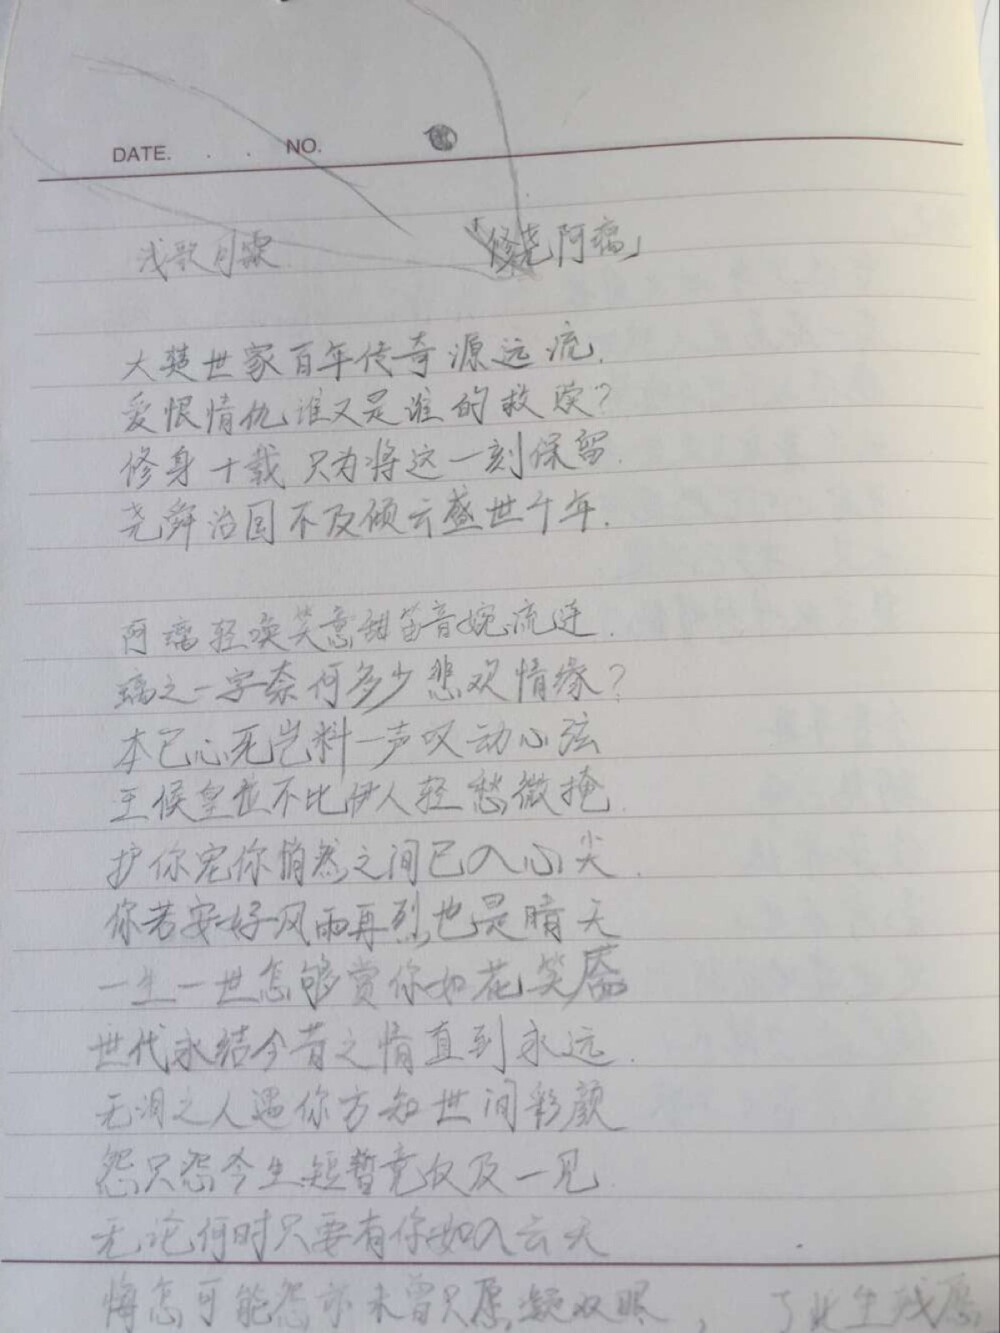 DATE. . . NO.
浅歌月霖 「修尧阿璃」
大楚世家百年传奇源远流.
爱恨情仇谁又是谁的救赎?
修身十载只为将这一刻保留.
尧舜治国不及倾云盛世千年.
阿璃轻唤笑意甜笛音婉流连.
璃之一字奈何多少悲欢情缘?
本已心死岂料一声叹动心弦
王候皇位不比伊人轻愁微掩.
护你宠你悄然之间已入心尖.
你若安好风雨再烈也是晴天
一生一世怎够赏你如花笑靥
世代永结今昔之情直到永远.
无泪之人遇你方知世间彩颜
怨只怨今生短暂竟仅及一见.
无论何时只要有你如入云天
悔怎可能怨亦未曾只愿凝双眼, 了此生残愿.